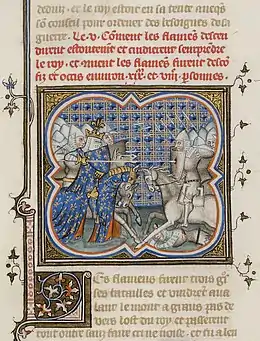 dedun, et le roy estoit en sa tente auecqs
son conseil pour ordener des besoignes de sa
guerre. Le .v. Coment les flamēs descen
dirent et cuidierent seurprēdre
le roy, et coment les flamēs furent descō
fiz et occis enuiron .xx. et viii. psonnes.
Les flamens furent trois gr̄
ses batailles et vindrēt aua
lant le mont a grans pas de
vers lost du roy, et passerent
tout outre sans faire cri ne noise, et fu a leu